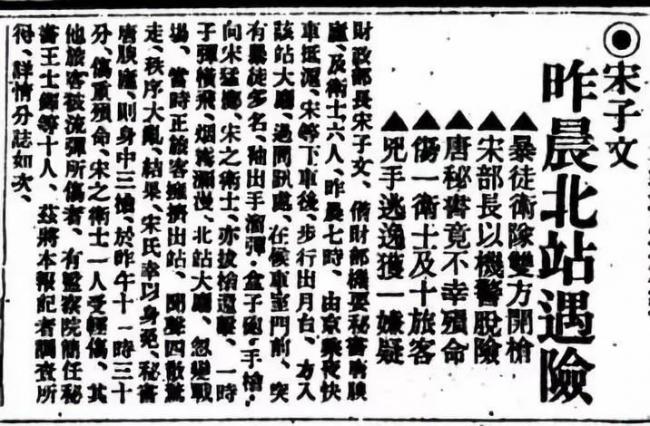 ◉宋子文
昨晨北站遇險
▲暴徒衛隊雙方開槍
▲宋部長以機警脫險
▲唐秘書竟不幸殞命
▲傷一衛士及十旅客
▲兇手逃逸獲一嫌疑
財政部長宋子文、偕財部機要秘書唐腴
廬、及衛士六人、昨晨七時、由京乘夜快
車抵滬、宋等下車後、步行出月台、方入
該站大廳、過問訊處、在候車室門前、突
有暴徒多名、袖出手溜彈·盒子砲·手槍·
向宋猛擲、宋之衛士、亦拔槍還擊、一時
子彈橫飛、烟霧瀰漫、北站大廳、忽變戰
場、當時正旅客擁擠出站、聞聲四散驚
走、秩序大亂、結果、宋氏幸以身免、秘書
唐腴廬、則身中三槍、於昨午十一時三十
分、傷重殞命、宋之衛士一人受輕傷、其
他旅客被流彈所傷者、有監察院簡任秘
書王士等十人、茲將本報記者調查所
得、詳情分誌如次、